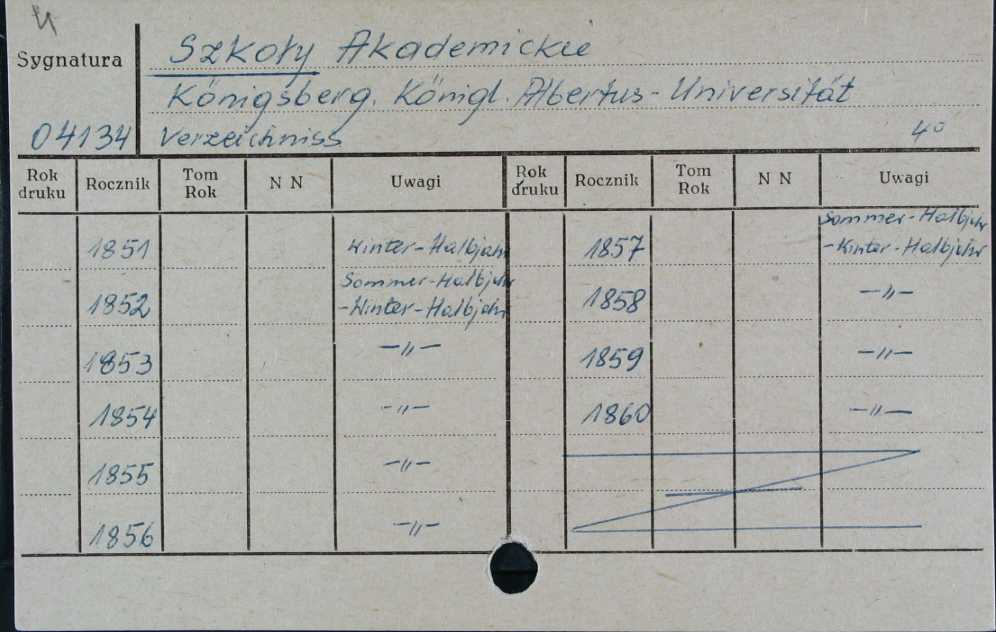 4
Sygnatura Szkoły Akademickie
Königsberg. Königl. Albertus-Universität
04134 Verzeichniss 4°
Rok druku Rocznik Tom Rok N N Uwagi Rok druku Rocznik Tom Rok N N Uwagi
1851 Winter-Halbjahr
1852 Sommer-Halbjahr
-Winter-Halbjahr
1853 —〃—
1854 -〃—
1855 —〃—
1856 —〃—
1857 Sommer-Halbjahr
-Winter-Halbjahr
1858 —〃—
1859 —〃—
1860 —〃—